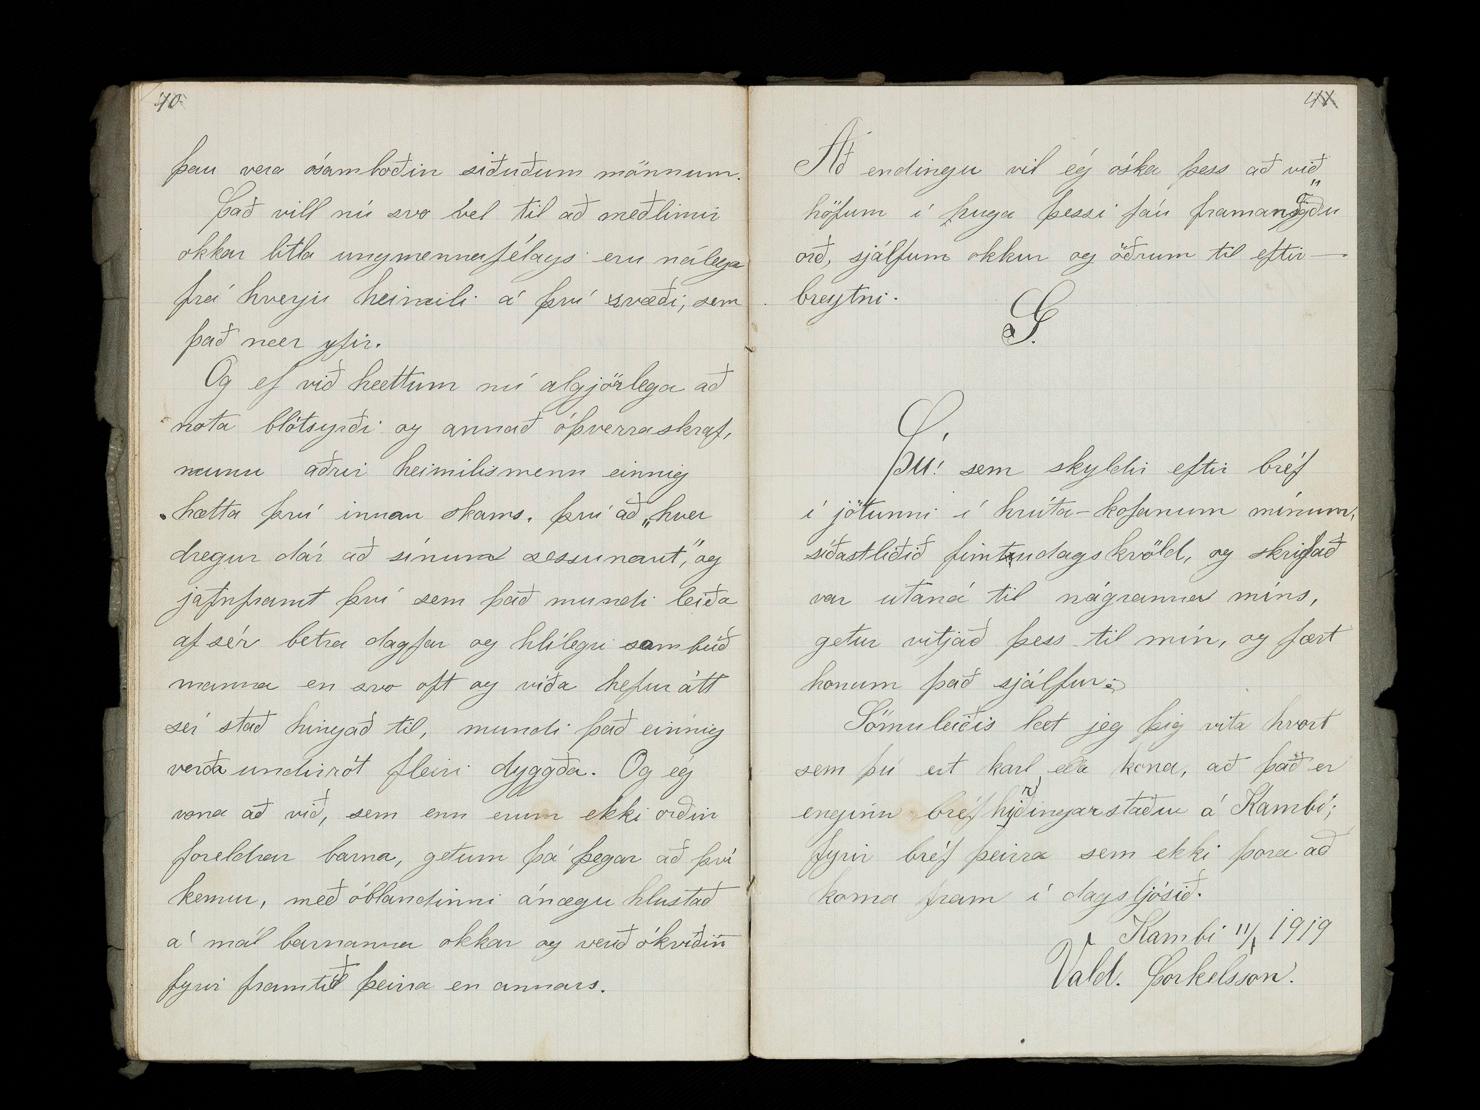 40
þau vera ósamboðin siðuðum mönnum.
Það vill nú svo vel til að meðlimir
okkar litla ungmennafélags eru nálega
frá hverju heimili á því svæði, sem
það nær yfir.
Og ef við hættum nú algjörlega að
nota blótsyrði og annað óþverraskraf,
munu aðrir heimilismenn einnig
hætta því innan skams. því að „hver
dregur dár að sínum sessunaut," og
jafnframt því sem það mundi leiða
af sér betra dagfar og hlílegri sambúð
manna en svo oft og víða hefur átt
sér stað hingað til, mundi það einnig
verða undirrót fleiri dyggða. Og ég
vona að við, sem enn erum ekki orðin
foreldrar barna, getum þá þegar að því
kemur, með óblandinni ánægu hlustað
á mál barnanna okkar og verið ókvíðin
fyrir framtíð þeirra en annars.
41
Að endingu vil ég óska þess að við
höfum í huga þessi fáu framansögðu
orð, sjálfum okkur og öðrum til eftir-
breytni.
G.
Þú! sem skyldir eftir bréf
í jötunni í hrúta-kofanum mínum,
síðastliðið fimtudagskvöld, og skrifað
var utaná til nágranna míns,
getur vitjað þess til mín, og fært
honum það sjálfur.
Sömuleiðis læt jeg þig vita hvort
sem þú ert karl eða kona, að það er
enginn bréfhirðingarstaður á Kambi;
fyrir bréf þeirra sem ekki þora að
koma fram í dagsljósið.
Kambi 11/1 1919
Vald. Þorkelsson.